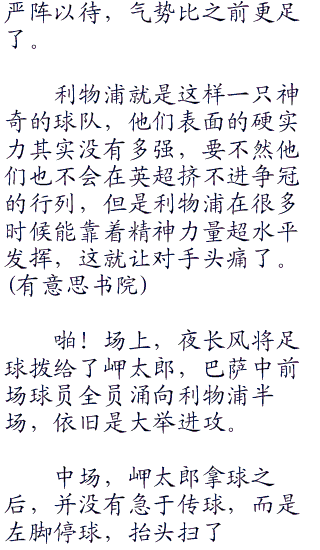 严阵以待，气势比之前更足
了。
利物浦就是这样一只神
奇的球队，他们表面的硬实
力其实没有多强，要不然他
们也不会在英超挤不进争冠
的行列，但是利物浦在很多
时候能靠着精神力量超水平
发挥，这就让对手头痛了。
(有意思书院)
啪！场上，夜长风将足
球拨给了岬太郎，巴萨中前
场球员全员涌向利物浦半
场，依旧是大举进攻。
中场，岬太郎拿球之
后，并没有急于传球，而是
左脚停球，抬头扫了